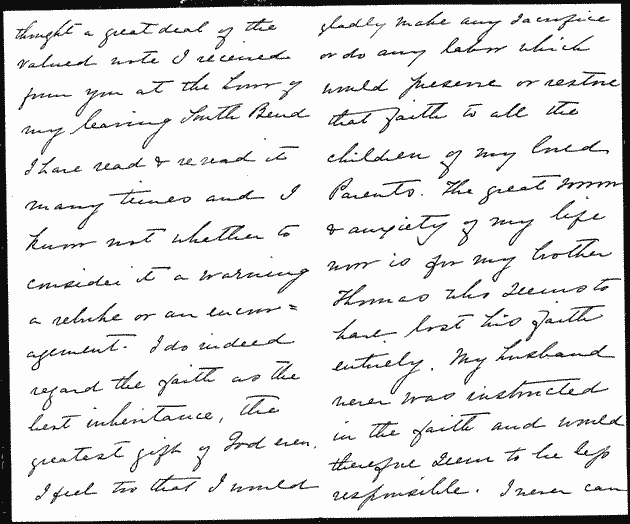 thought a great deal of the
valued note I received
from you at the hour of
my leaving South Bend
I have read & reread it
many times and I
know not whether to
consider it a warning
a rebuke or an encour=
agement. I do indeed
regard the faith as the
best inheritance, the
greatest gift of God even.
I feel too that I would
gladly make any sacrifice
or do any labor which
would preserve or restore
that faith to all the
children of my loved
Parents. The great
& anxiety of my life
now is for my brother
Thomas who seems to
have lost his faith
entirely. My husband
never was instructed
in the faith and would
therefore seem to be less
responsible. I never can